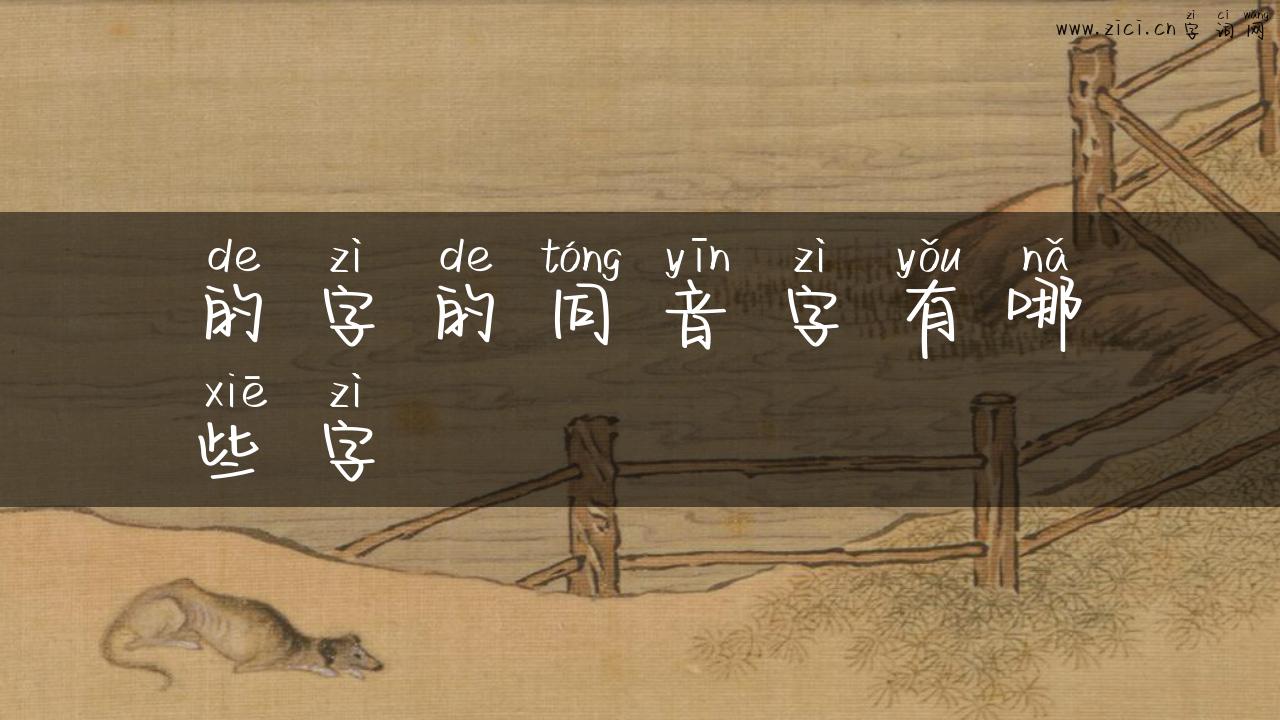 zì cí wǎng
www.zici.cn 字词网
de zì de tóng yīn zì yǒu nǎ
的字的同音字有哪
xiē zì
些字